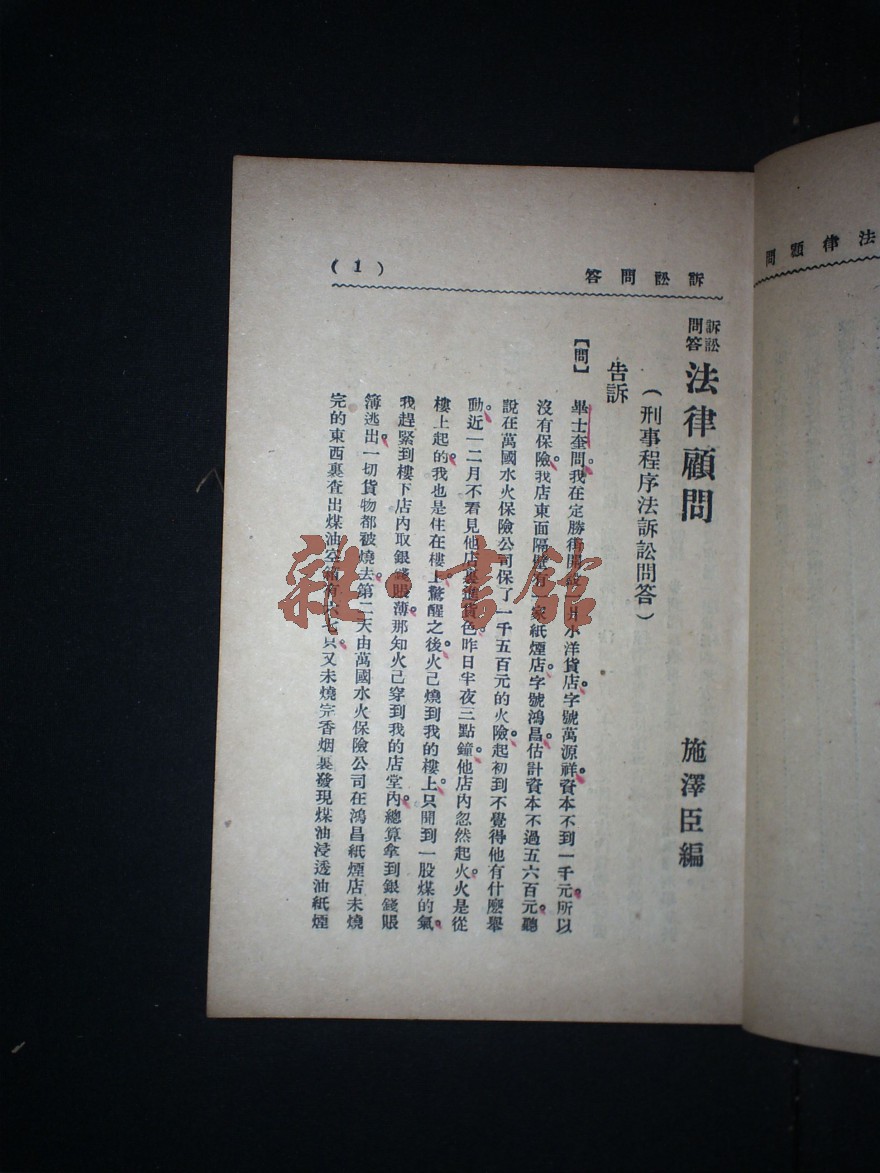 法律顧問
訴訟問答
(1)
訴訟問答
法律顧問
(刑事程序法訴訟問答)
施澤臣編
告訴
【問】畢士奎問。我在定勝街開設一爿小洋貨店。字號萬源祥。資本不到一千元。所以
沒有保險。我店東面隔壁有一家紙煙店。字號鴻昌。估計資本不過五六百元。聽
說在萬國水火保險公司保了一千五百元的火險。起初到不覺得他有什麼舉
動。近一二月不看見他店裏進貨色。昨日半夜三點鐘。他店內忽然起火。火是從
樓上起的。我也是住在樓上。驚醒之後。火已燒到我的樓上。只聞到一股煤的氣。
我趕緊到樓下店內取銀錢賬薄。那知火已穿到我的店堂內。總算拿到銀錢賬
簿逃出。一切貨物都被燒去。第二天由萬國水火保險公司在鴻昌紙煙店未燒
完的東西裏查出煤油空箱有六七只。又未燒完香烟裏發現煤油浸透油紙煙
雜·書館